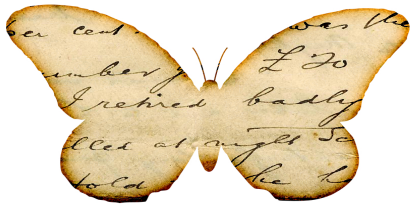 per cent was the
number £ 70
I retired badly
lled at night
told he h